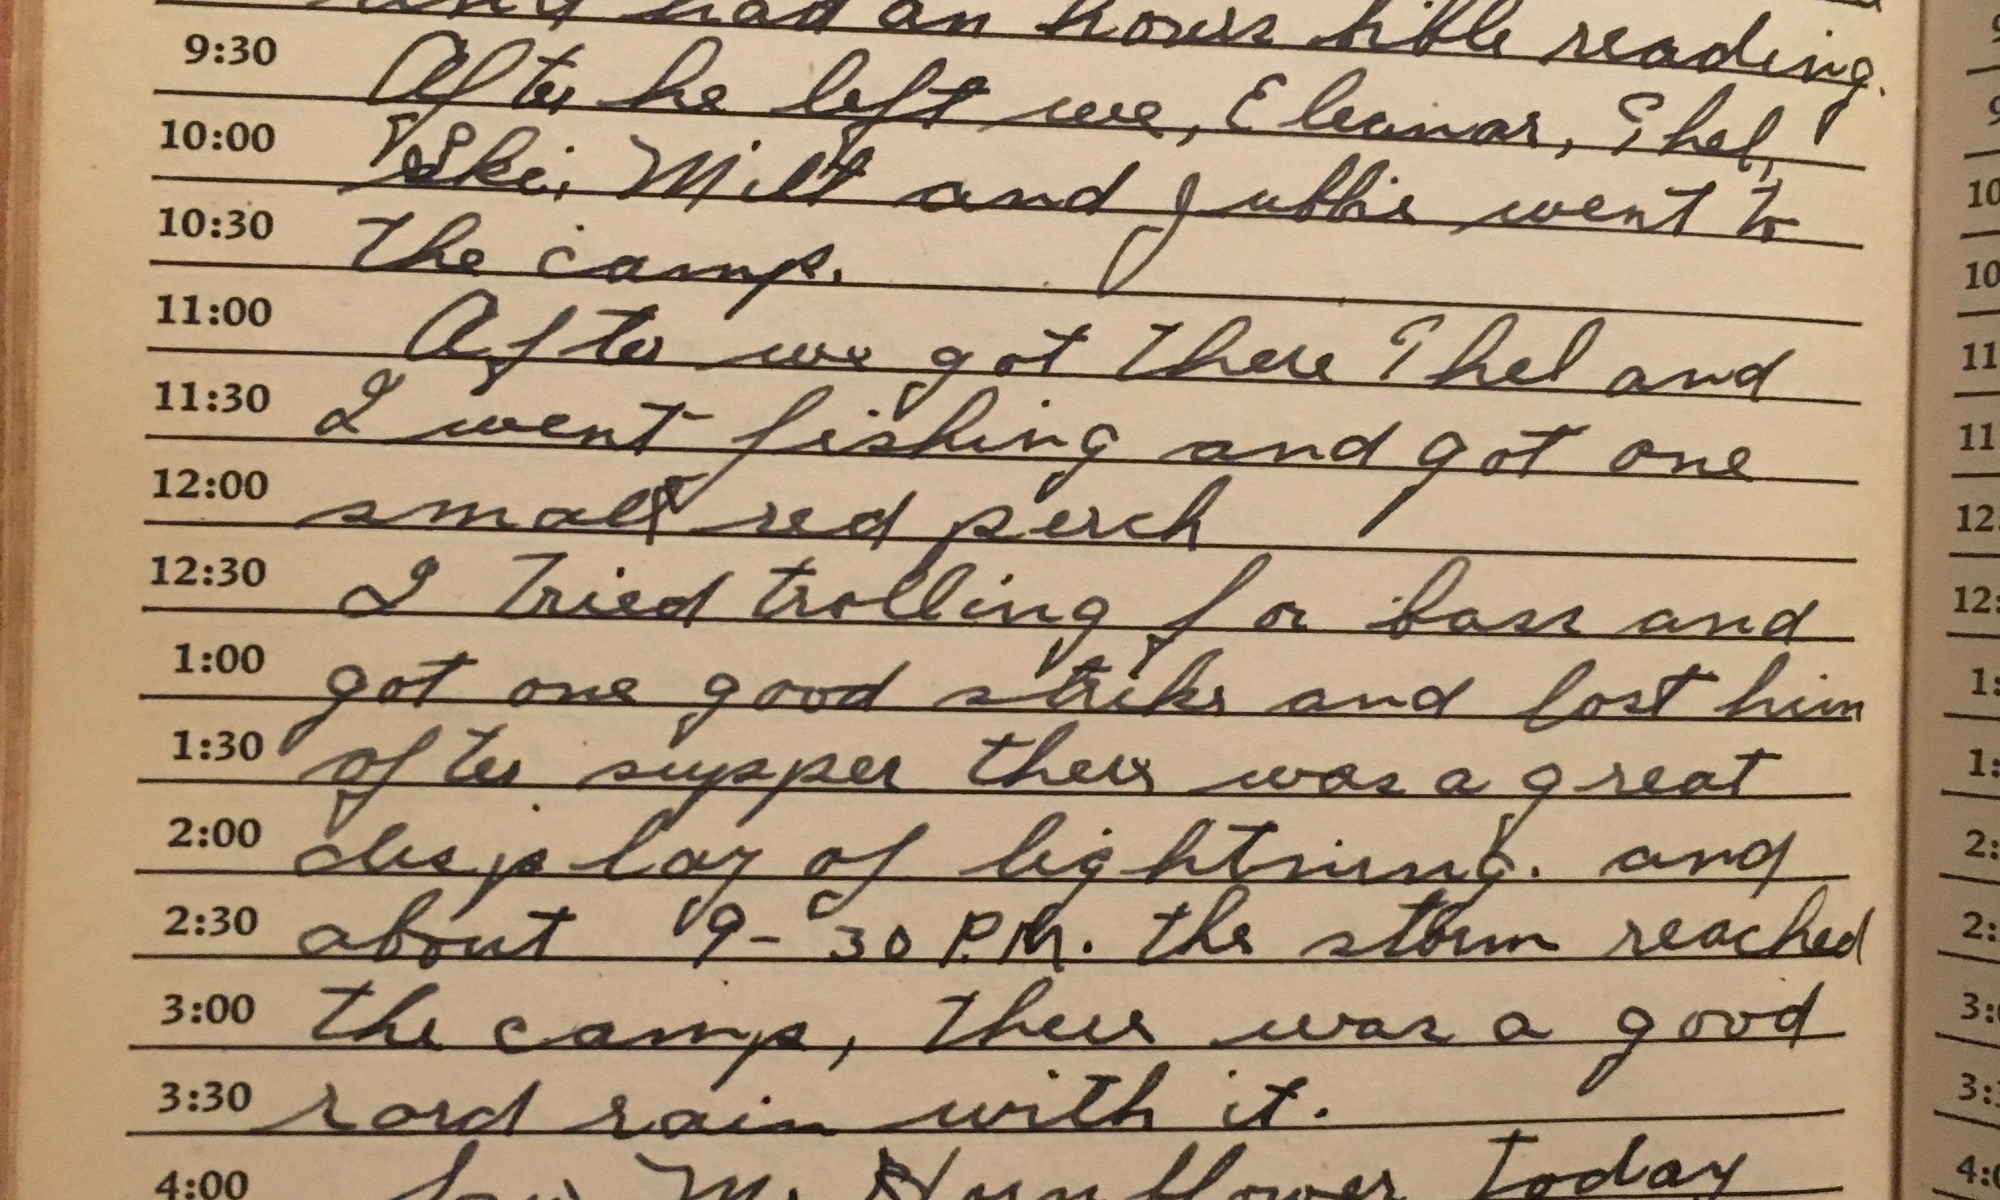 and had an hours bible reading.
9:30 After he left we, Eleanar, Thel,
10:00 Ski, Milt and Jubbie went to
10:30 the camp.
11:00 After we got there Thel and
11:30 I went fishing and got one
12:00 small red perch
12:30 I tried trolling for bass and
1:00 got one good strike and lost him
1:30 after supper there was a great
2:00 display of lightning. and
2:30 about 9-30 P.M. the storm reached
3:00 the camp, there was a good
3:30 rain with it.
4:00 today
9
9
10
10
11
11
12
12:
1:
1:
2:
2:
3:
3:
4: